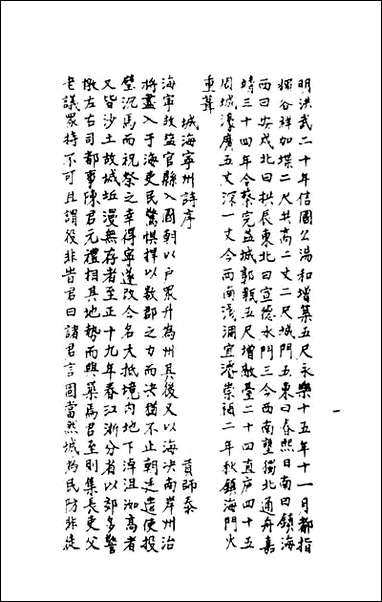 明洪武二十年信國公湯和增築五尺永樂十五年十一月都指
揮谷祥如堞二尺共高二丈二尺城門五東曰春熙日南曰鎮海
西曰安戍北曰拱辰東北曰宣德水門三今西南壅獨北通舟嘉
靖三十四年令蔡完益城郭穎五尺增敵臺二十四直廬四十五
周城濠廣五丈深一丈今西南淺涸宜濬崇禎二年秋鎮海門火
重葺
城海寧州詩序
貢師泰
海寧故鹽官縣入國朝以戶眾升為州其後又以海決南岸州治
將盡入于海吏民驚惧擇以數郡之力而決猶不止朝廷遣使投
璧沉馬而祝祭之幸得寧遂改今名大抵境內地下淖沮洳高者
又皆沙土故城坵漫無存者至正十九年春江浙分省以郊多警
檄左右司都事陳君元禮相其地勢而興築焉君至則集長吏父
老議眾持不可且謂役非昔君曰諸君言固當然城為民防非徒